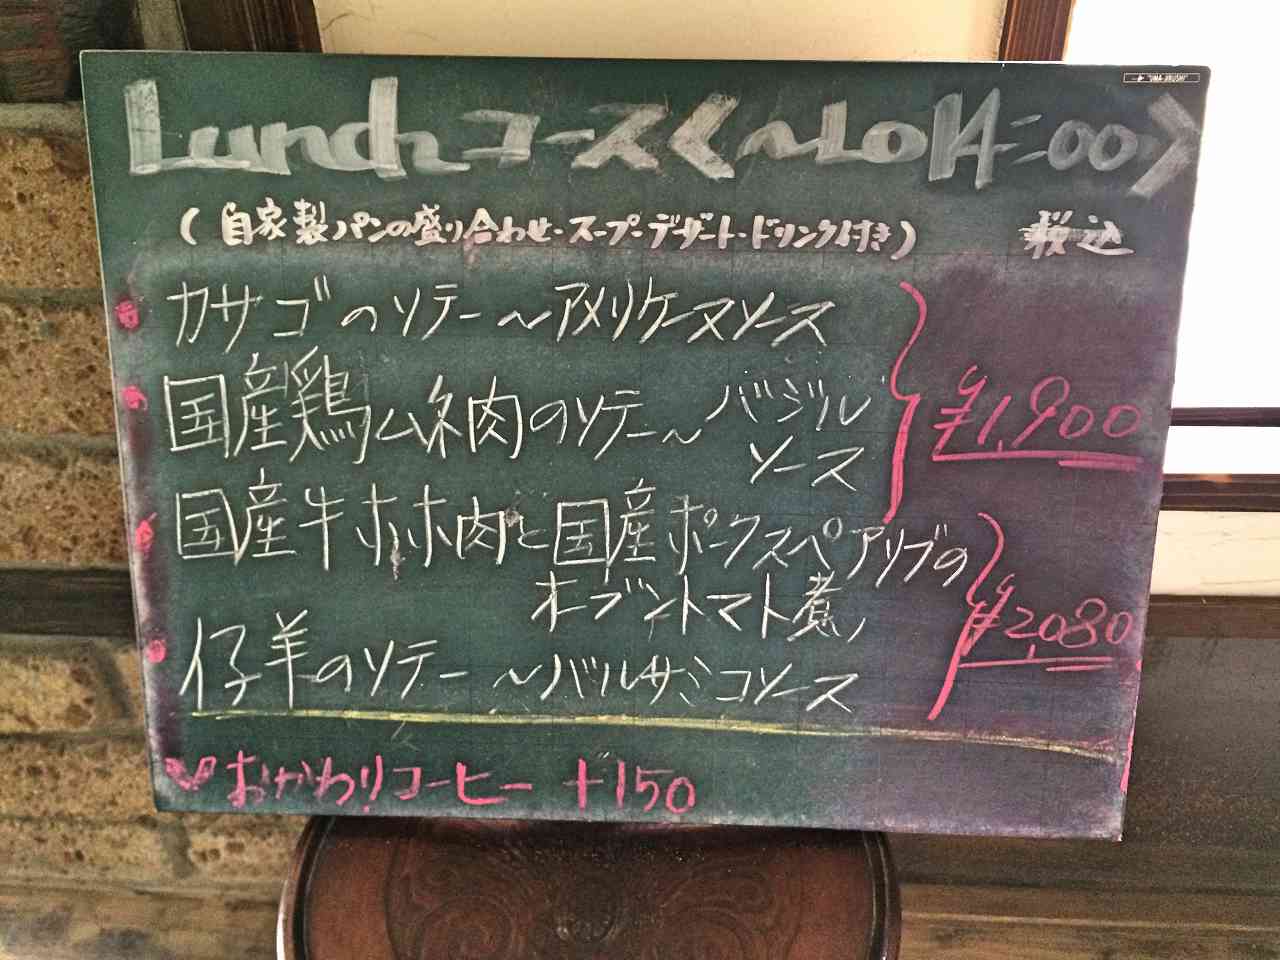 Lunchコース〈～LO14:00〉
(自家製パンの盛り合わせ・スープ・デザート・ドリンク付き) 税込
カサゴのソテー～アメリケーヌソース
国産鶏ムネ肉のソテー～バジル
ソース
¥1,900
国産牛ホホ肉と国産ポークスペアリブの
オーブントマト煮
仔羊のソテー～バルサミコソース
¥2,080
おかわりコーヒー +150